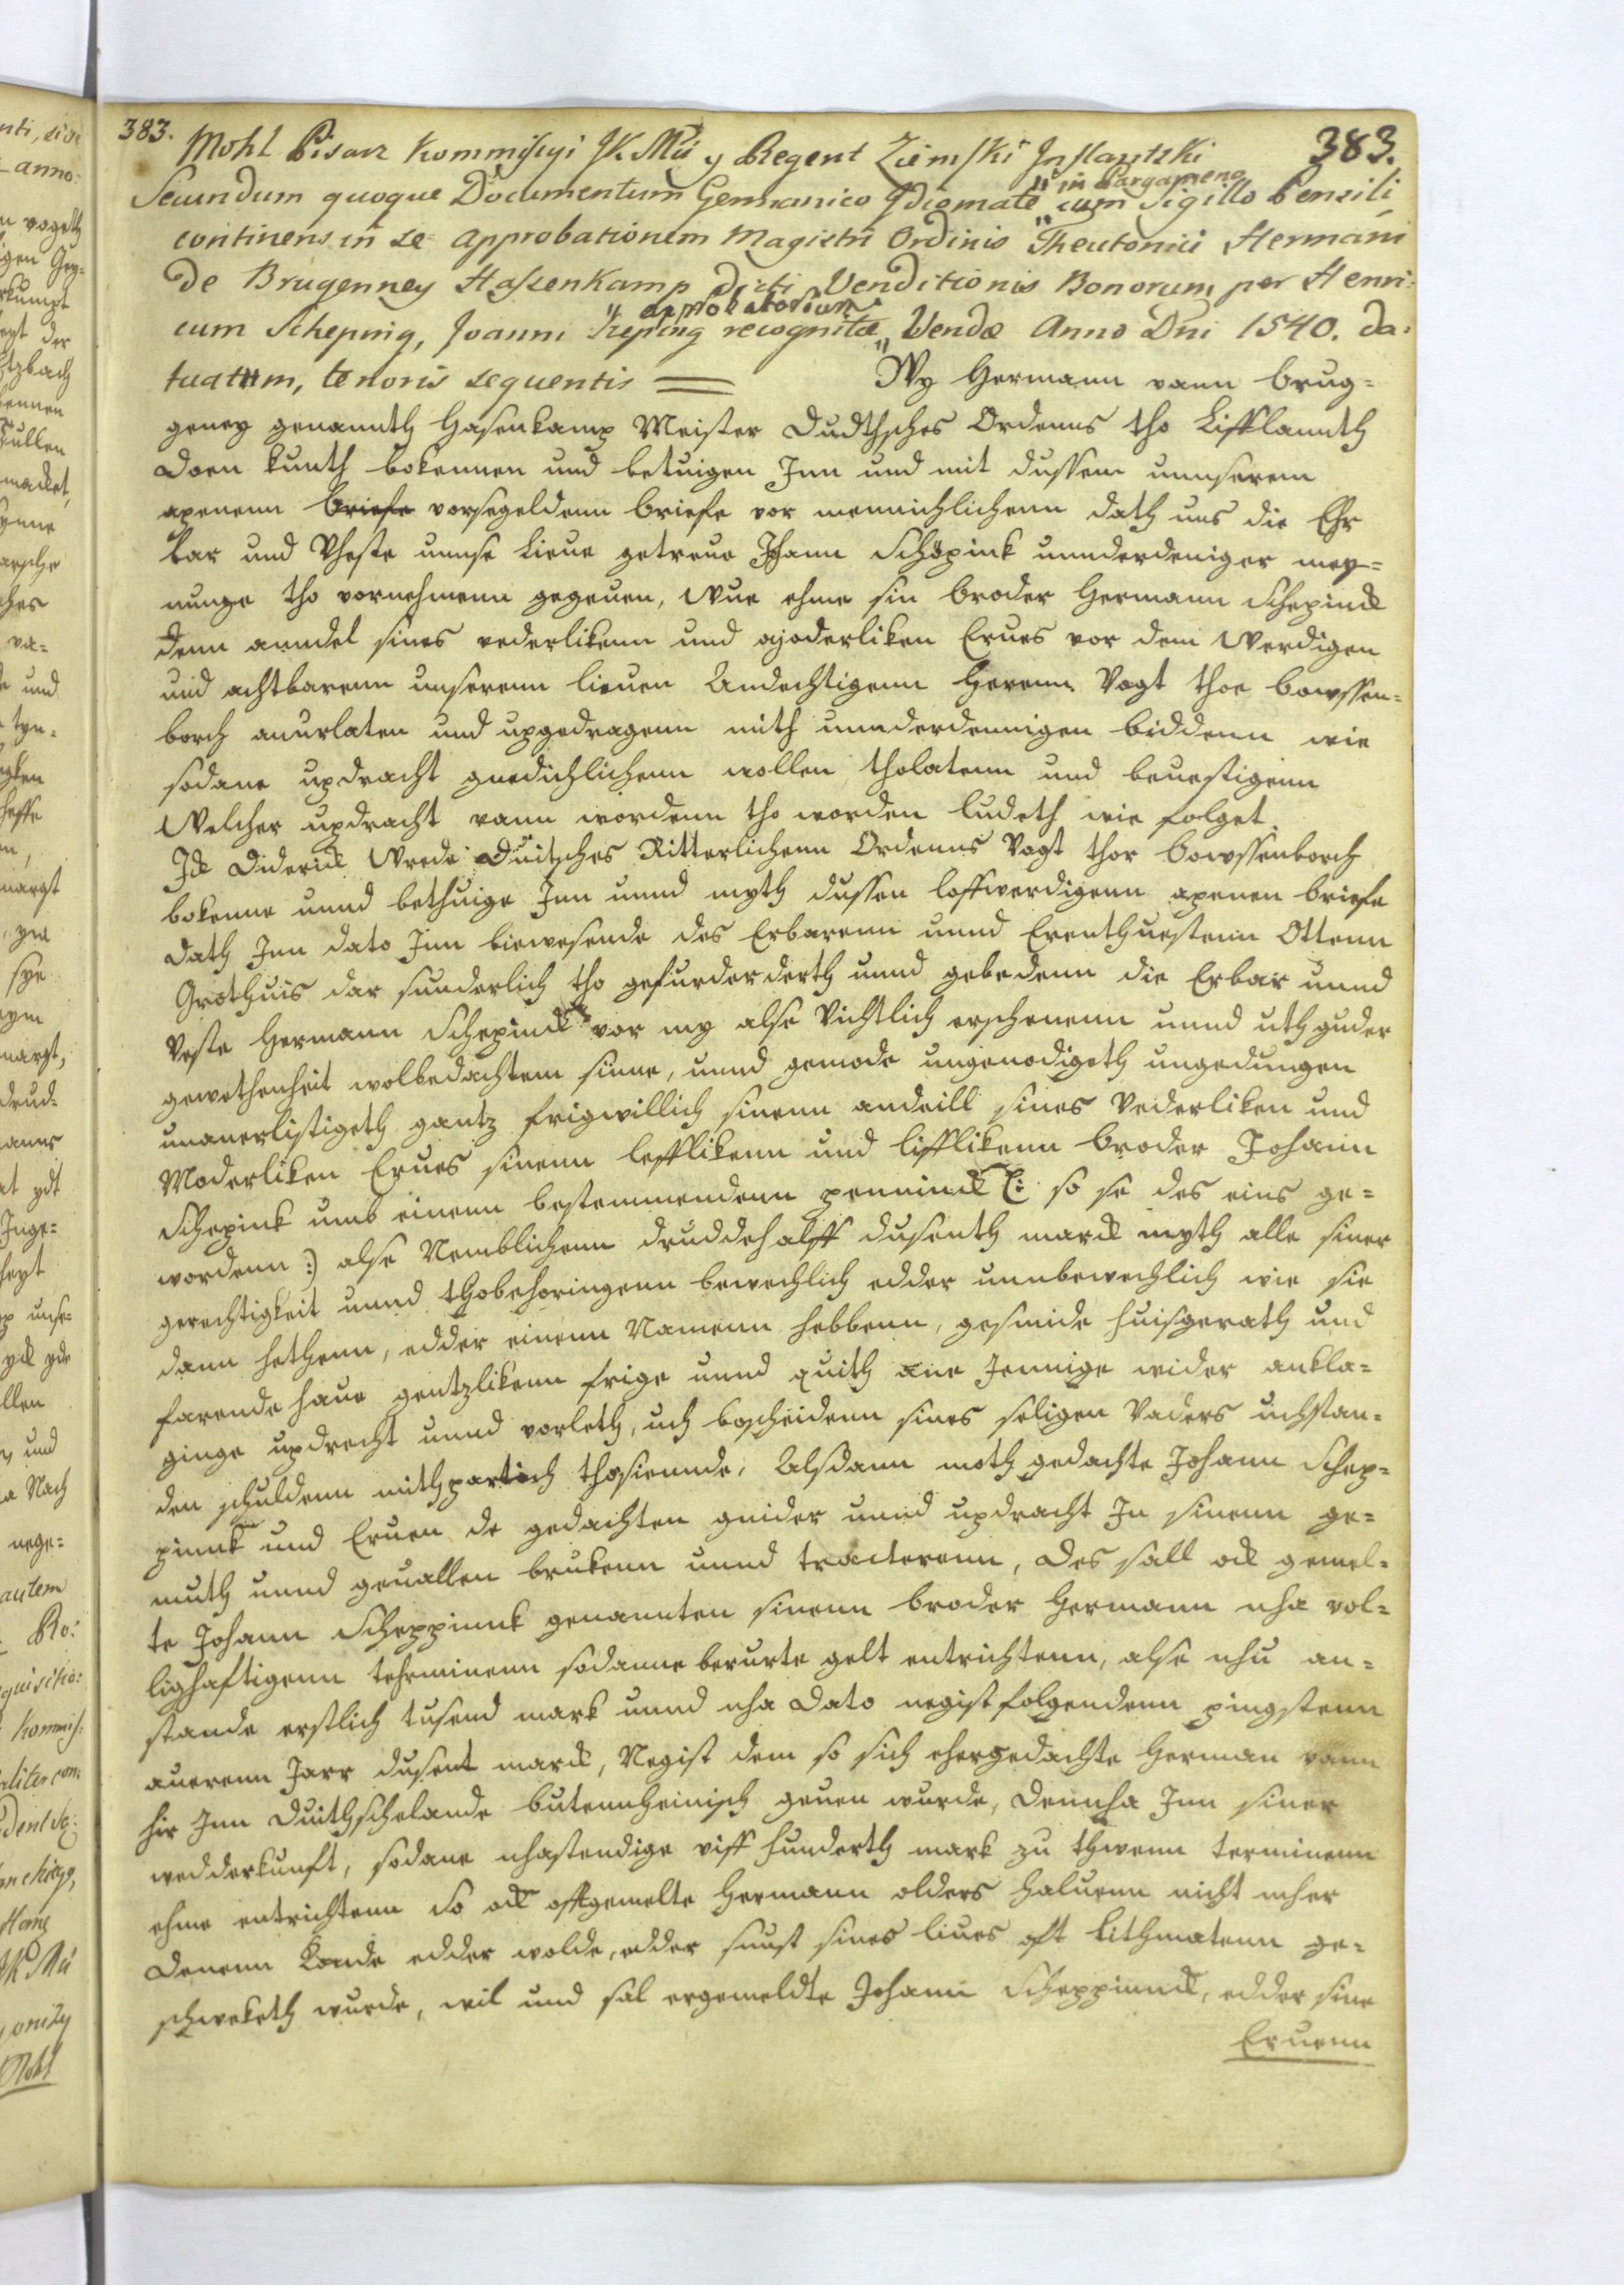 383. Mohl Pisarz Kommissyi JK Mci y Regent Ziemski Inflantski 383.
Secundum quoque Documentum Germanico Idiomate " in Pargameno " cum Sigillo Pensili
continens in se Approbationem Magistri Ordinis Theutonici Hermani
De Brugenney Hasenkamp dicti Venditionis Bonorum per Henri-
cum Scheping, Joanni Szeping recognitæ " approbatorium " Vendæ Anno Dni 1540. da-
tuatum, tenoris sequentis = Wy Hermann vann Brug=
geney genannth Hasenkamp Meister Dudthsches Ordenns tho Lifflannth
Doen kunth bekennen und betuigen Inn und mit dussem unnserem
apenenn briefe vorsegeldenn briefe vor mennichlichenn dath uns die Ehr
bar und Vheste unnse Lieue getreue Johann Schöpink unnderdeniger mey=
nunge tho vornehmenn gegeuen, Wue ehme sin broder Hermann Schepinck
denn anndel sines vederlikenn und moderliken Erues vor dem Werdigen
und achtbarenn unserenn lieuen Andechtigenn Herenn Vogt thor bowssen=
borch auurlaten und upgedragenn mith unnderdennigen biddenn wie
sodane updracht gnedichlichenn wollen tholatenn und beuestigenn
Welcher updracht vann wordenn tho worden ludeth wie folget.
Ick Diderick Wrede Duitsches Ritterlichenn Ordenns Vogt thor bowssenborch
bekenne unnd bethuige Inn unnd myth dussen loffwerdigenn apenen briefe
dath Inn dato Inn biewesende des Erbarenn unnd Erenthuestenn Ottenn
Grothuis dar sunderlich tho gefurderderth unnd gebedenn die Erbar unnd
Veste Hermann Schepinck vor my alse Vichtlich erschenenn unnd uth guder
gewethenheit wolbedachtem sinne, unnd gemode ungenodigeth ungedungen
unauerlistigeth gantz frigwillich sinenn andeill sines Vederliken und
Moderliken Erues sinenn lefflikenn und lifflikenn broder Johann
Schepink umb einenn bestemmendenn penninck (: so se des eins ge=
wordenn :) alse Nemblichenn druddehalff dusenth marck myth alle siner
gerechtigkeit unnd thobehoringenn bewechlich edder unnbewechlich wie sie
dann hethenn, edder einenn Namenn hebbenn, gesmide huisgerath und
farende haue gentzlikenn frige unnd quith ane Jennige wider ankla=
ginge updrecht unnd vorleth, uch bescheidenn sines seligen Vaders uchstan=
den schuldenn mithpartich thosiennde, Alsdann moth gedachte Johann Schep=
pinnk und Eruen de gedachten guider unnd updracht In sinenn ge=
muth unnd geuallen brukenn unnd tracterenn, des sall ock gemel=
te Johann Scheppinnk genannten sinenn broder Hermann nha vol=
lighaftigenn tehrminenn sodanne berurte gelt entrichtenn, alse nhu an=
stande erstlich tusend mark unnd nha dato negist folgendenn pingstenn
auerenn Jarr dusent marck, Negist dem so sich ehergedachte Herman vann
hir Inn Duithschelande butennheinisch geuen wurde, Dennha Inn siner
wedderkunft, sodane nhastendige viff hunderth mark zu thwenn terminenn
ehme entrichtenn So ock offtgemelte Hermann olders haluenn nicht mher
denenn konde edder wolde, edder sunst sines liues oft lithmatenn ge=
schweketh wurde, wil und sal ergemeldte Johann Scheppinnck, edder sine
Eruenn